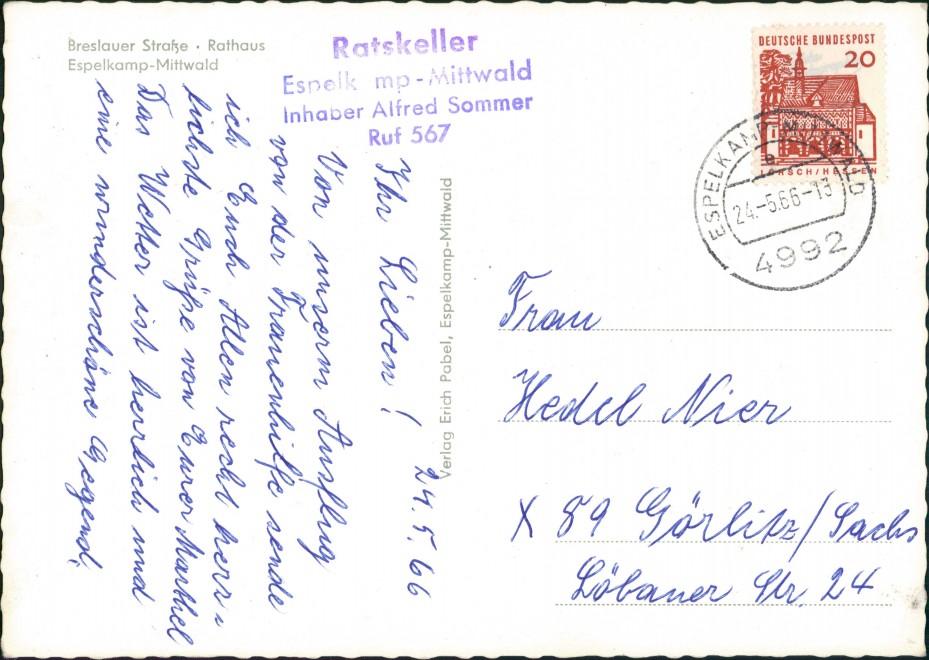 Breslauer Straße · Rathaus
Espelkamp-Mittwald
Ratskeller
Espelk mp-Mittwald
Inhaber Alfred Sommer
Ruf 567
DEUTSCHE BUNDESPOST
20
LORSCH/HESSEN
ESPELKAMP-MITTWALD
a
24.-5.66-13
4992
24.5.66
Ihr Lieben!
Von unserm Ausflug
von der Frauenhilfe sende
ich Euch Allen recht herz-
lichste Grüße von Eurer Marthel
Das Wetter ist herrlich und
eine wunderschöne Gegend.
Verlag Erich Pabel, Espelkamp-Mittwald
Frau
Hedel Nier
X 89 Görlitz/Sachs
Löbauer Str. 24